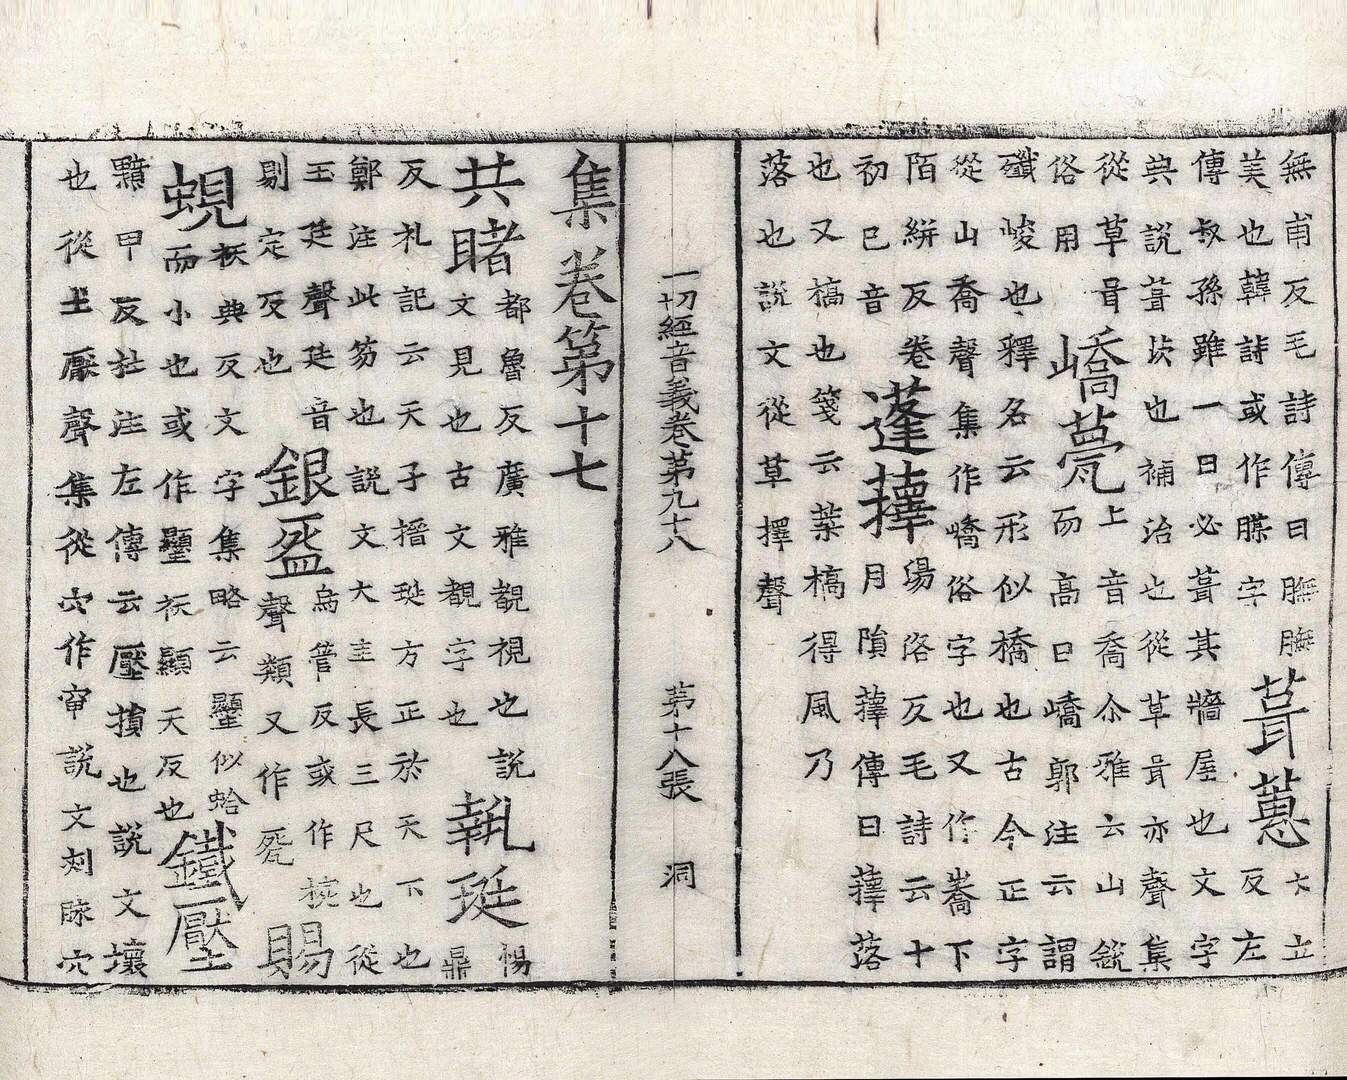 無甫反毛詩傳曰膴膴
美也韓詩或作腜字
葺蔥
立
反左
傳叔孫雖一日必葺其牆屋也文字
典說葺茨也補治也從草咠亦聲集
從草咠
俗用
嶠甍
上音喬尒雅云山銳
而高曰嶠郭注云謂
孅峻也釋名云形似橋也古今正字
從山喬聲集作嶠俗字也又作嶠下
陌絣反卷
初已音
蓬蘀
湯洛反毛詩云十
月隕蘀傳曰蘀落
也又槁也箋云葉槁得風乃
落也說文從草擇聲
一切經音義卷第九十八 第十八張 洞
集卷第十七
共睹
都魯反廣雅覩視也說
文見也古文覩字也
執珽
惕
鼎
反礼記云天子搢珽方正於天下也
鄭注此笏也說文大圭長三尺也從
玉廷聲廷音
剔定反也
銀盌
烏管反或作椀
聲類又作㼝
賜
蜆
袄典反文字集略云似蛤
而小也或作袄顯天反也
鐵壓
甲反杜注左傳云壓損也說文壞
也從土厭聲集從穴作說文刾脉穴